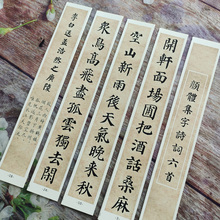 顏體集字詩詞六首
開軒面場圃把酒話桑麻
空山新雨後天氣晚來秋
衆鳥高飛盡孤雲獨去閒
李白送孟浩然之廣陵